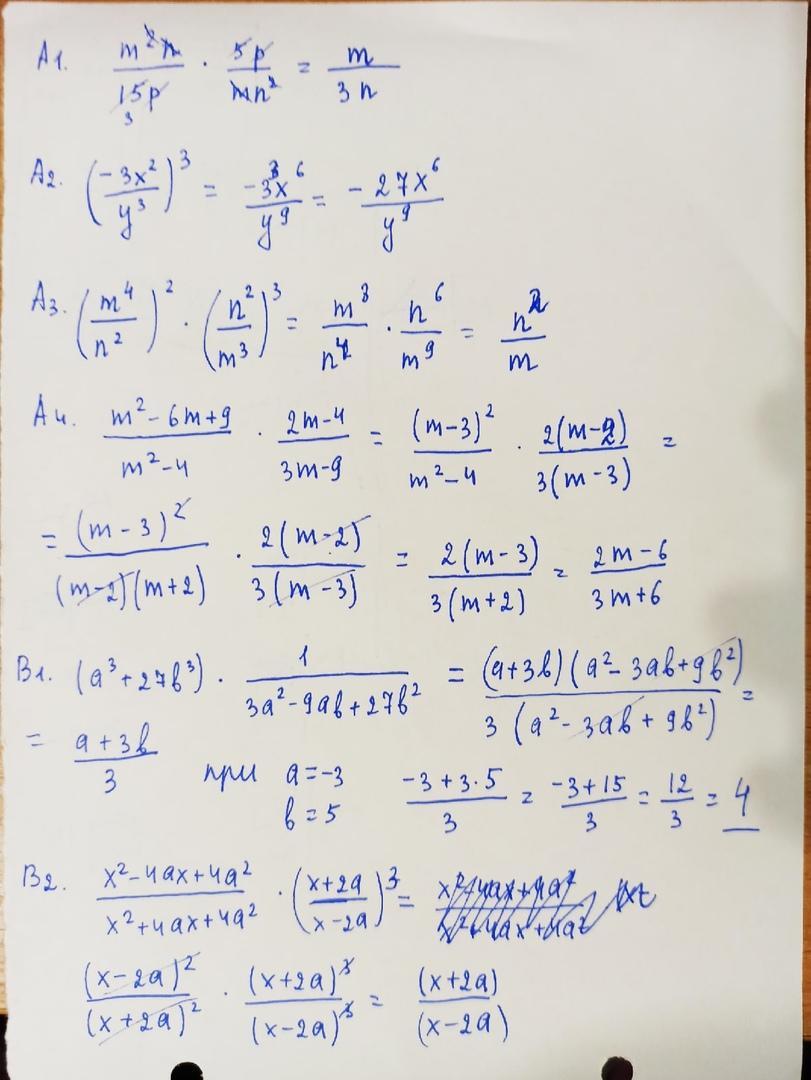 А1. m²n/15p · 5p/mn² = m/3n
3
А2. (-3x²/y³)³ = -3³x⁶/y⁹ = -27x⁶/y⁹
А3. (m⁴/n²)² · (n²/m³)³ = m⁸/n⁴ · n⁶/m⁹ = n²/m
А4. (m²-6m+9)/(m²-4) · (2m-4)/(3m-9) = (m-3)²/(m²-4) · 2(m-2)/3(m-3) =
= (m-3)²/(m-2)(m+2) · 2(m-2)/3(m-3) = 2(m-3)/3(m+2) = (2m-6)/(3m+6)
В1. (a³+27b³) · 1/(3a²-9ab+27b²) = (a+3b)(a²-3ab+9b²)/3(a²-3ab+9b²) =
= (a+3b)/3 при a=-3 (-3+3·5)/3 = (-3+15)/3 = 12/3 = 4
b=5
В2. (x²-4ax+4a²)/(x²+4ax+4a²) · ((x+2a)/(x-2a))³ =
(x-2a)²/(x+2a)² · (x+2a)³/(x-2a)³ = (x+2a)/(x-2a)